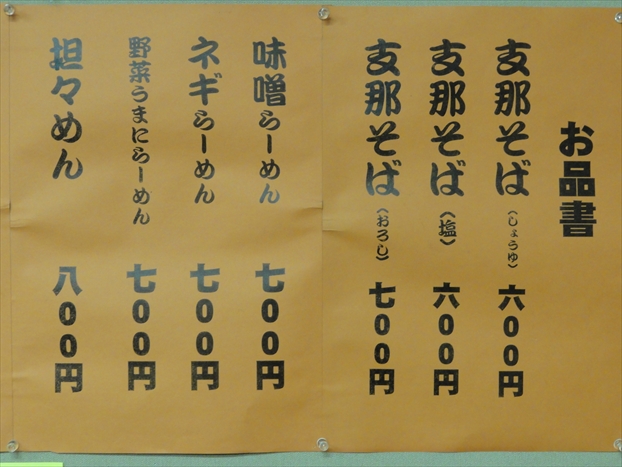 お品書
支那そば（しょうゆ） 六００円
支那そば（塩） 六００円
支那そば（おろし） 七００円
味噌らーめん 七００円
ネギらーめん 七００円
野菜うまにらーめん 七００円
担々めん 八００円